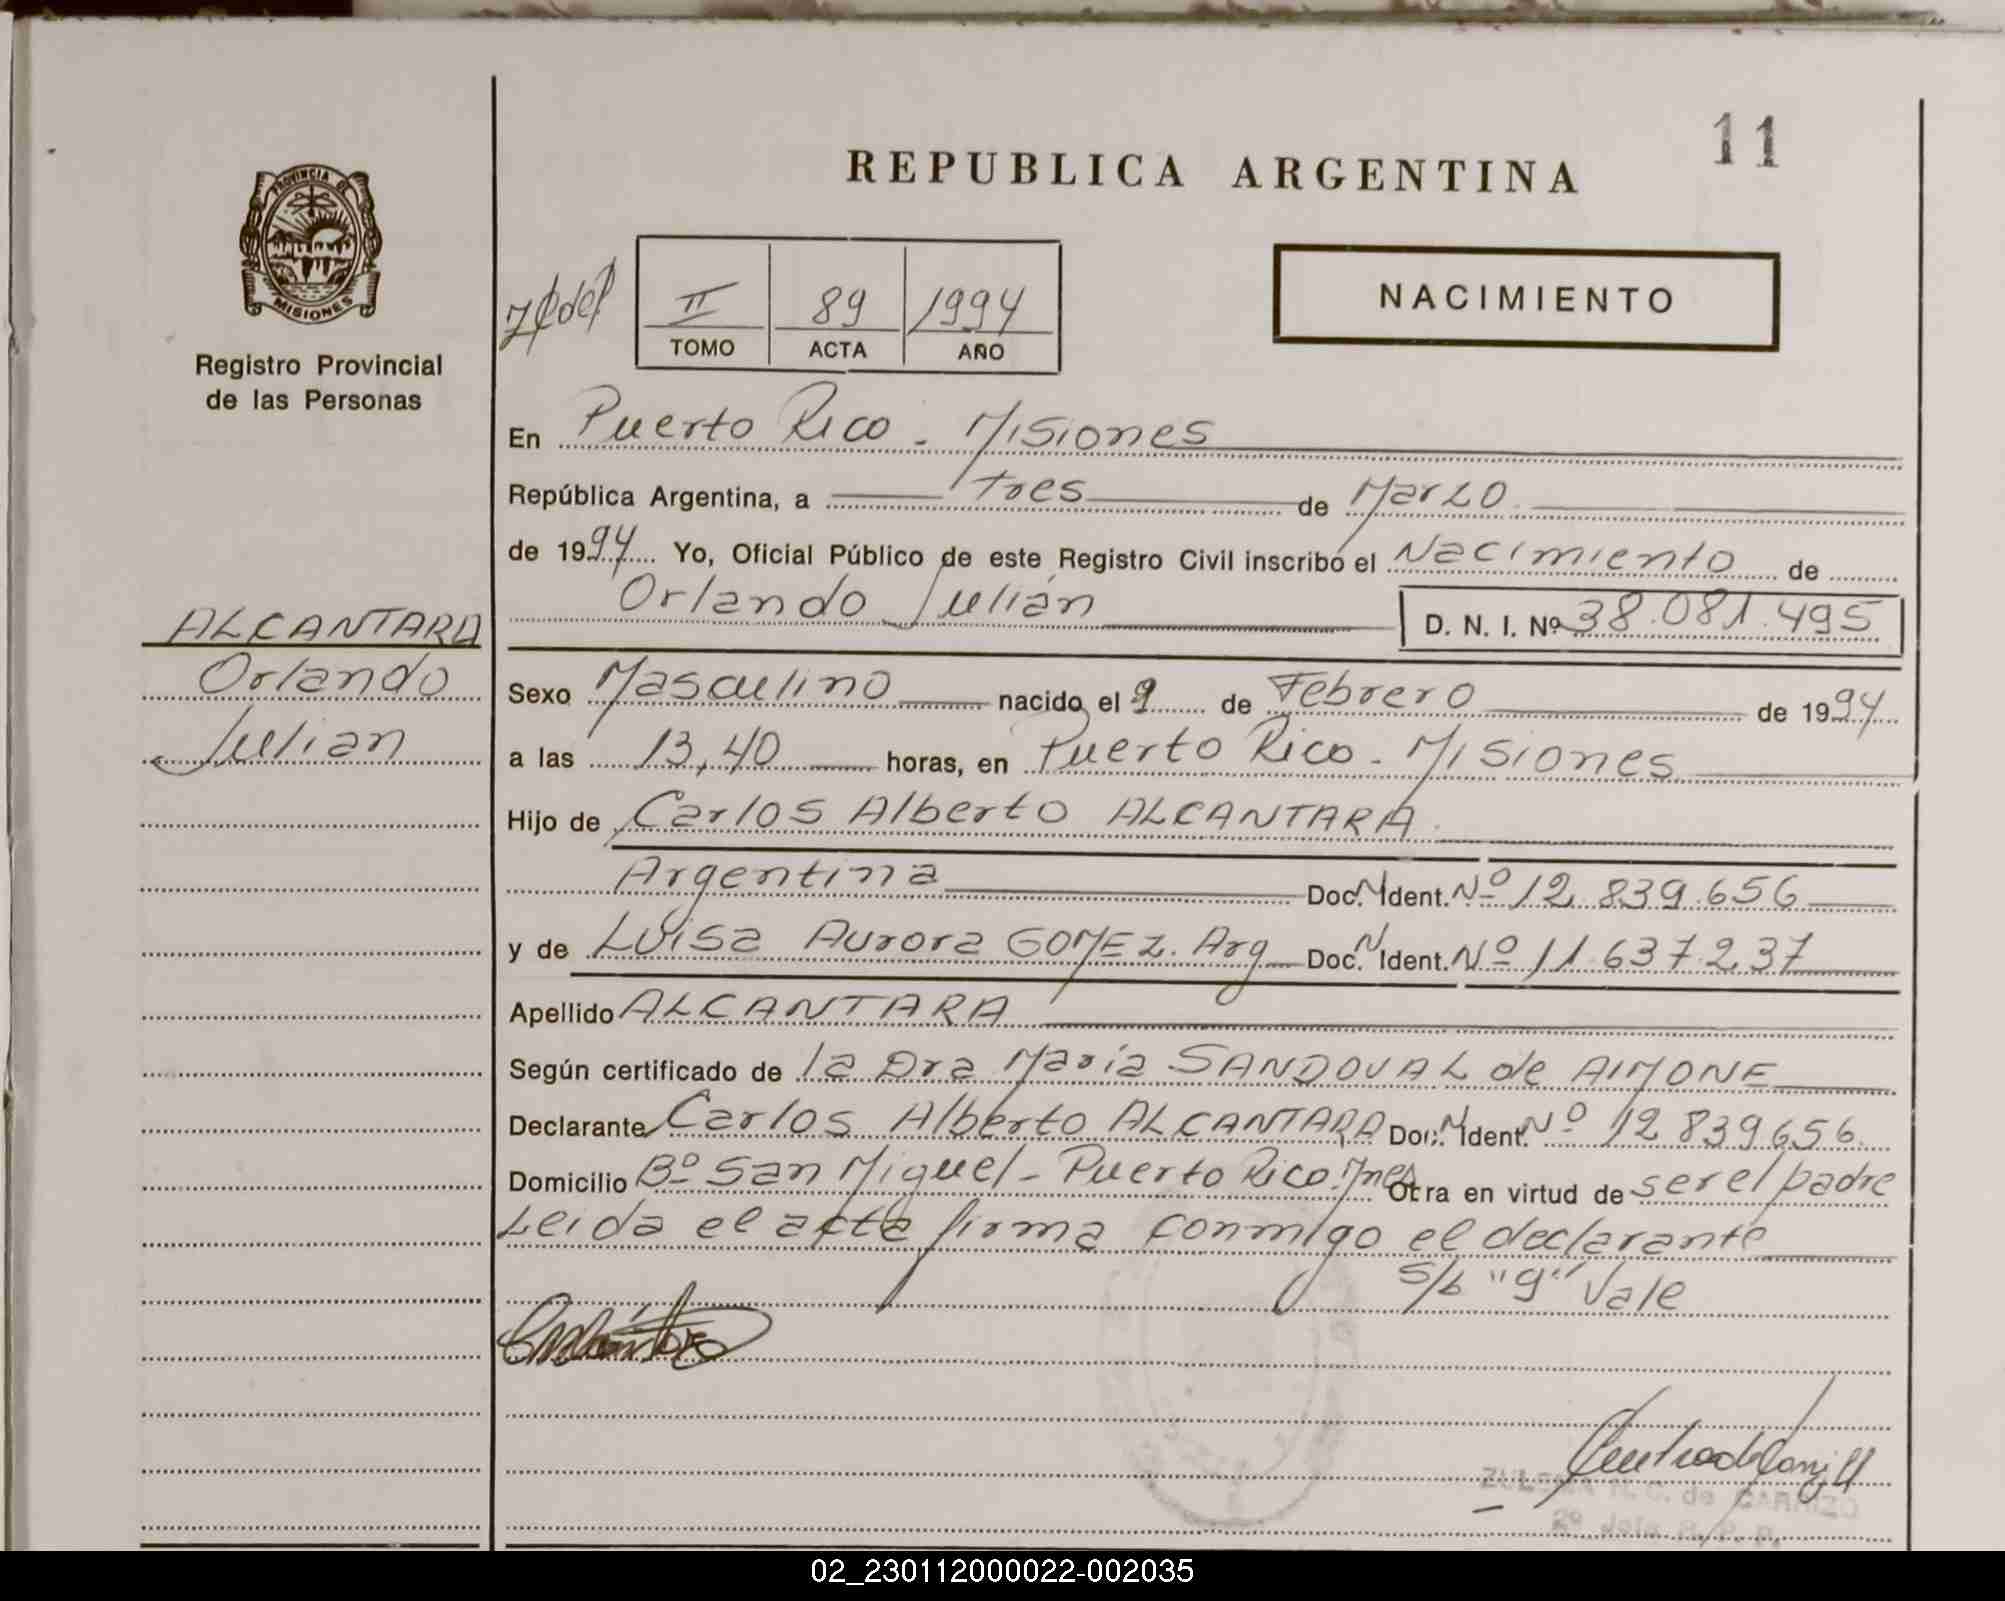 11
REPUBLICA ARGENTINA
PROVINCIA DE
MISIONES
Registro Provincial
de las Personas
II 89 1994
TOMO ACTA AÑO
NACIMIENTO
En Puerto Rico - Misiones
República Argentina, a tres de Marzo
de 1994 Yo, Oficial Público de este Registro Civil inscribo el Nacimiento de
Orlando Julián D. N. I. Nº 38.081.495
ALCANTARA
Orlando
Julian
Sexo Masculino nacido el 9 de Febrero de 1994
a las 13,40 horas, en Puerto Rico - Misiones
Hijo de Carlos Alberto ALCANTARA
Argentina Doc. N Ident. Nº 12.839.656
y de Luisa Aurora GOMEZ. Arg Doc. N Ident. Nº 11.637.237
Apellido ALCANTARA
Según certificado de la Dra María SANDOVAL de AIMONE
Declarante Carlos Alberto ALCANTARA Doc. N Ident. Nº 12.839.656
Domicilio Bº San Miguel - Puerto Rico. Mnes Otra en virtud de ser el padre
Leida el acta firma conmigo el declarante
S/b "9" Vale
ZULEMA M. C. de CARRIZO
2º Jefe R. P. P.
02_230112000022-002035